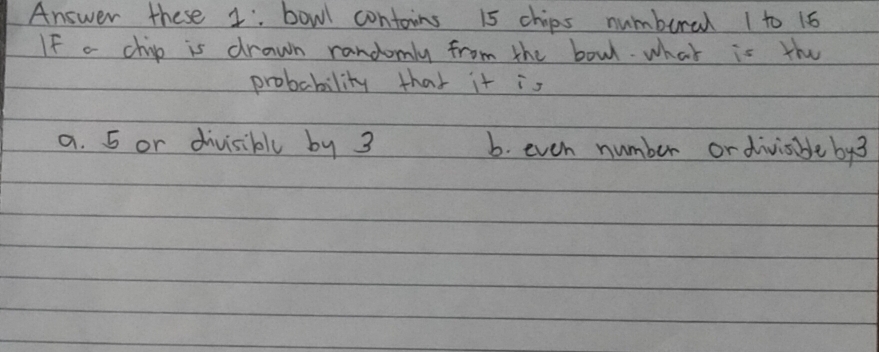 Answer these 1: bowl contains 15 chips numbered 1 to 15
IF a chip is drawn randomly from the bowl. what is the
probability that it is
a. 5 or divisible by 3 b. even number or divisible by 3